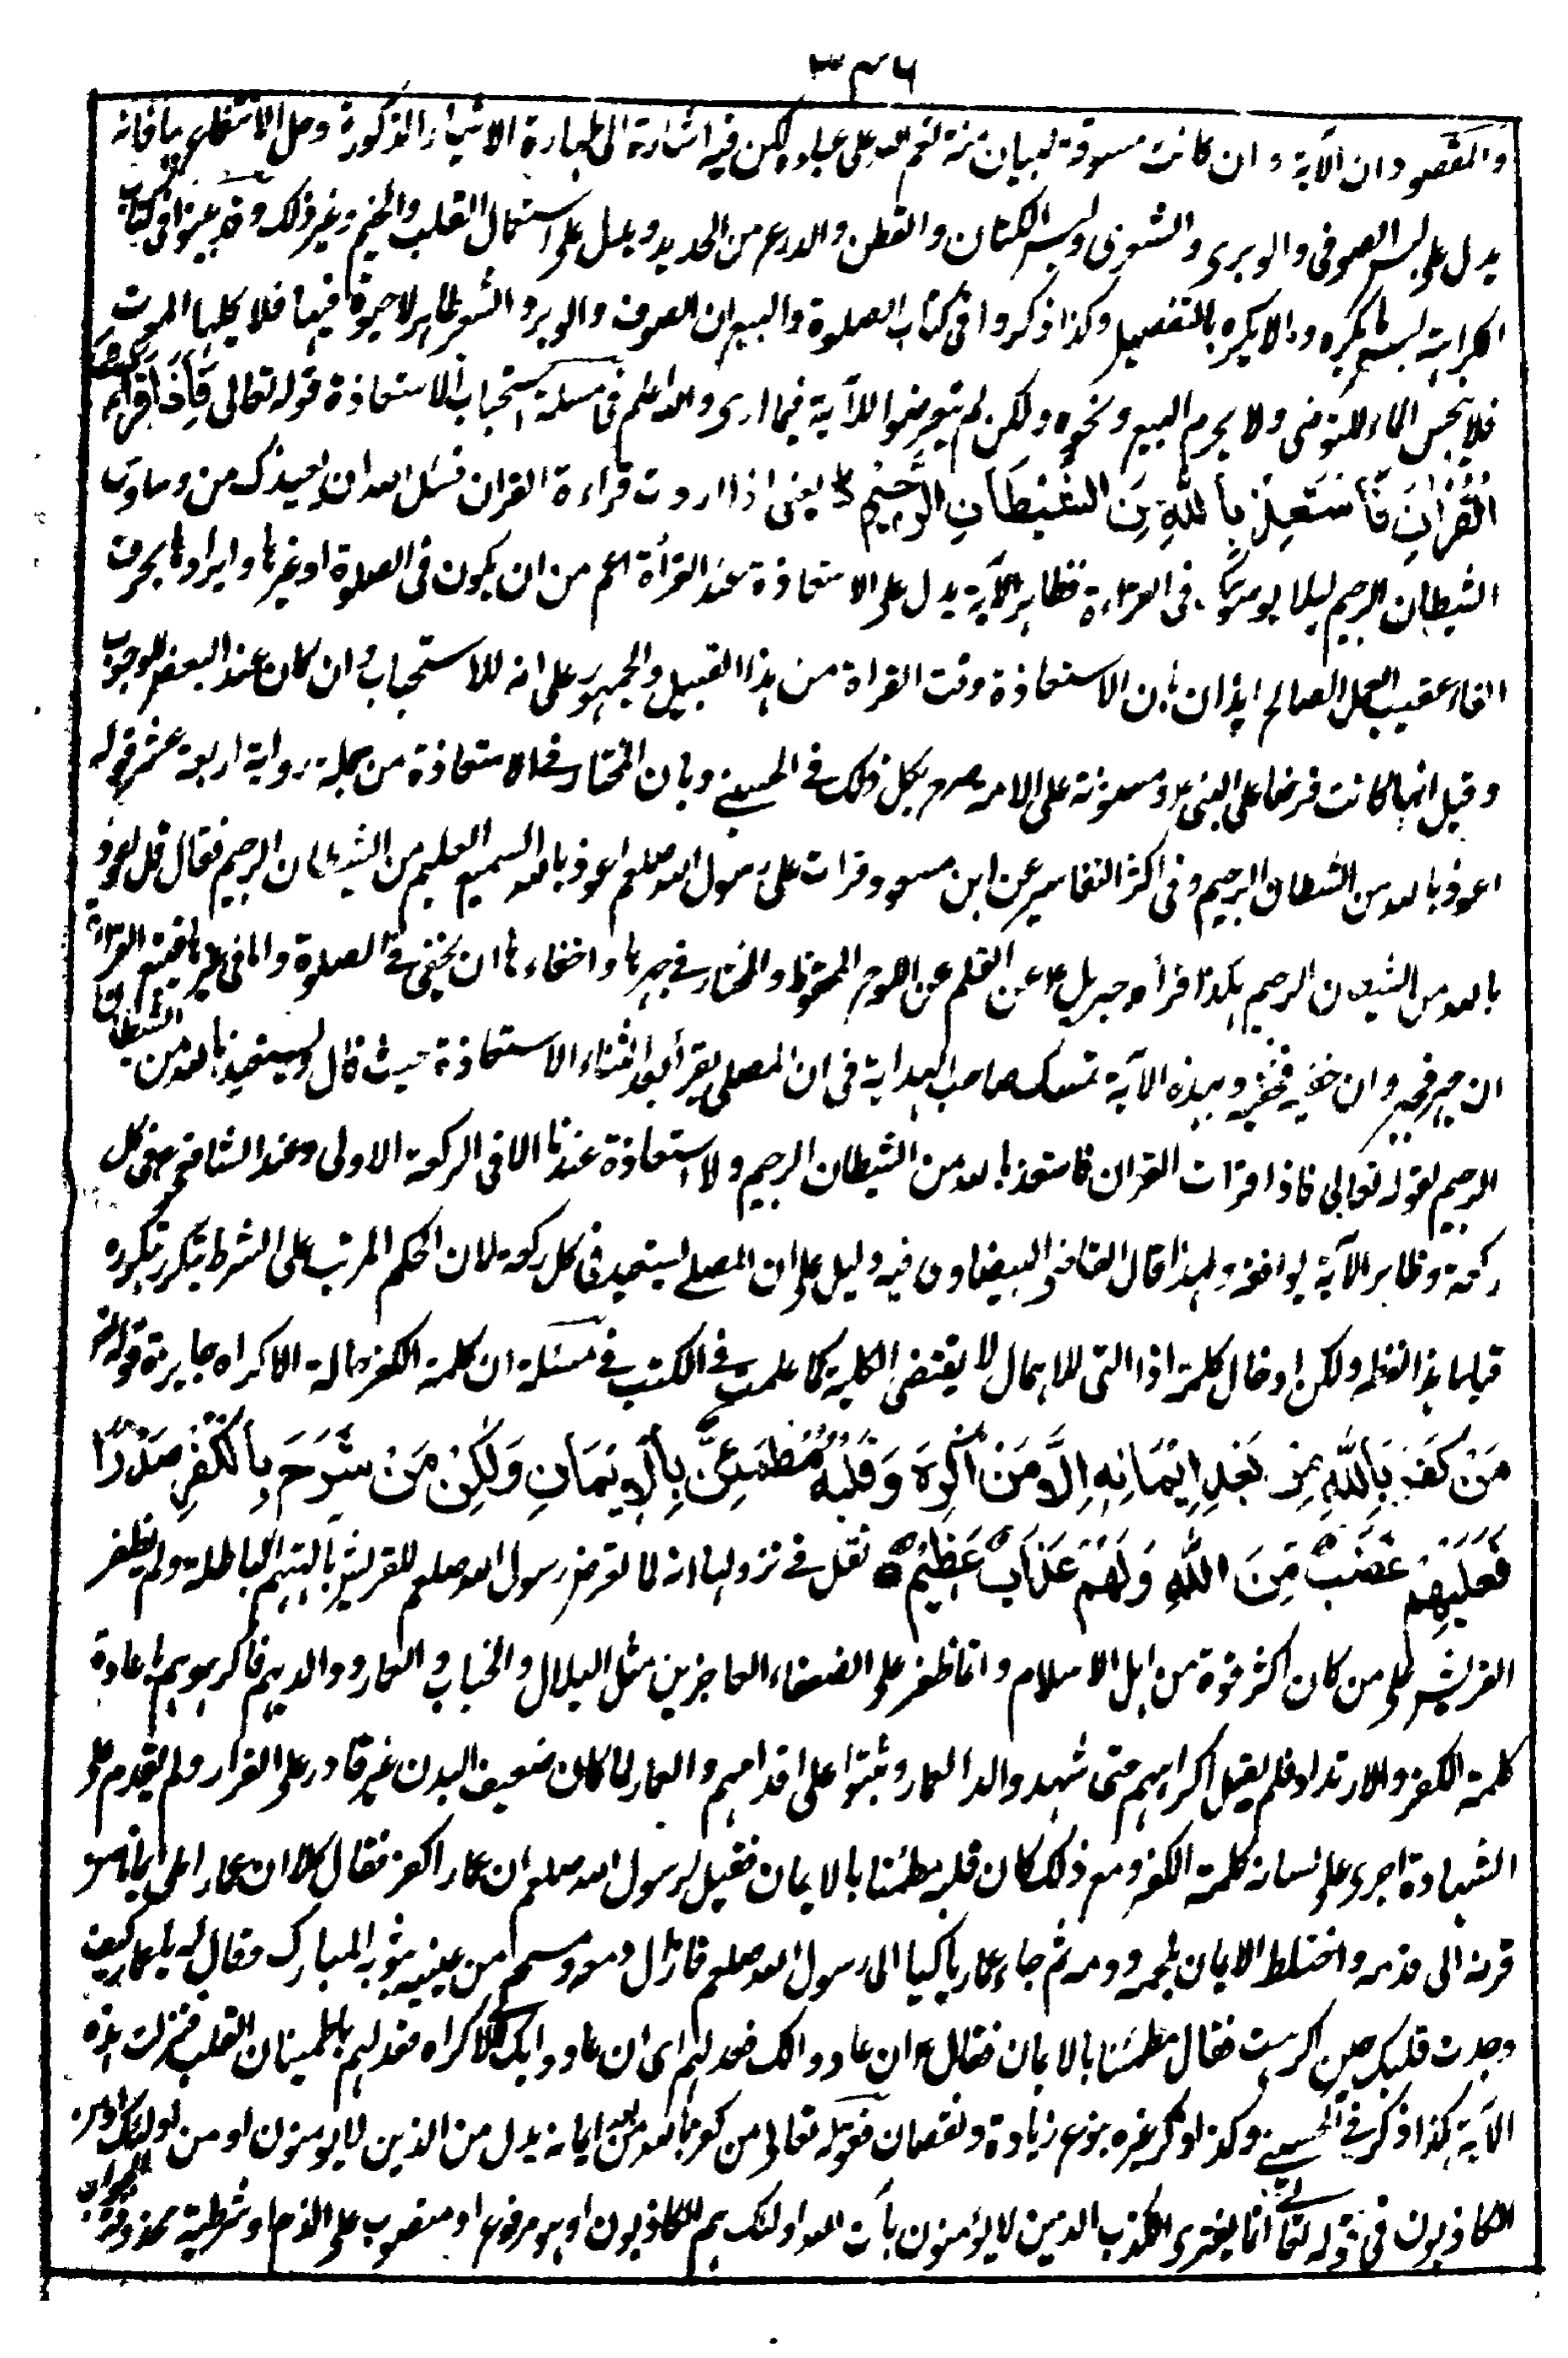 ٣٤٦
والمقصود ان الآية وان كانت مسوقة لبيان منة نعم الله على عباده لكن فيه اشارة الى طهارة الاشياء المذكورة وحل الانتفاع بها فانه
يدل على لبس الصوفى والوبرى والشعرى ولبس الكتان والقطن والدرع من الحديد ويدل على استعمال القلب والخيم وغير ذلك وقد عينوا فى كتاب
الكراهية لبس ما يكره وما لا يكره بالتفصيل وكذا ذكروا فى كتاب الصلوة والبيع ان الصوف والوبر والشعر طاهر لا حيوة فيها فلا يحلها الموت
فلا ينجس الماء للتوضى ولا يحرم البيع ونحوه ولكن لم يتعرضوا للآية فيما ارى والله اعلم فى مسئلة استحباب الاستعاذة قوله تعالى فَاِذَا قَرَأْتَ
الْقُرْاٰنَ فَاسْتَعِذْ بِاللّٰهِ مِنَ الشَّيْطَانِ الرَّجِيْمِ يعنى اذا اردت قراءة القران فسئل الله ان يعيذك من وساوس
الشيطان الرجيم ليلا يوسوسك فى القراءة فظاهر الآية يدل على الاستعاذة عند القرأة اعم من ان يكون فى الصلوة او غيرها وايرادها بحرف
الفاء عقيب العمل الصالح ايذان بان الاستعاذة وقت القراة من هذا القبيل والجمهور على انه للاستحباب وان كان عند البعض للوجوب
وقيل انها كانت فرضا على النبى ع م ومسنونة على الامة صرح بكل ذلك فى الحسينى وبان المختار فى الاستعاذة من جملة رواية اربعة عشر قوله
اعوذ بالله من الشيطان الرجيم وفى اكثر التفاسير عن ابن مسعود قرات على رسول الله صلعم اعوذ بالله السميع العليم من الشيطان الرجيم فقال قل اعوذ
بالله من الشيطان الرجيم هكذا اقرأه جبريل ع عن القلم عن اللوح المحفوظ والمختار فى جهرها واخفاءها ان يخفى فى الصلوة واما فى غيرها فيتبع القراءة
ان جهر فجهر وان خفيه فخفيه وبهذه الآية تمسك صاحب الهداية فى ان المصلى يقرأ بعد الثناء الاستعاذة حيث قال ويستعيذ بالله من الشيطان
الرجيم لقوله تعالى فاذا قرات القران فاستعذ بالله من الشيطان الرجيم ولا استعاذة عندنا الا فى الركعة الاولى وعند الشافعى رح فى كل
ركعة وظاهر الآية يوافقه ولهذا قال القاضى البيضاوى فيه دليل على ان المصلى يستعيذ فى كل ركعة لان الحكم المرتب على الشرط يتكرر بتكرره
قياسا هذا لفظه ولكن ادخال كلمة اذا التى للاهمال لا يقتضى الكلية كما علمت فى الكتب فى مسئلة ان كلمة الكفر حالة الاكراه جايزة قوله تعالى
مَنْ كَفَرَ بِاللّٰهِ مِنْ بَعْدِ اِيْمَانِهٖ اِلَّا مَنْ اُكْرِهَ وَقَلْبُهٗ مُطْمَئِنٌّ بِالْاِيْمَانِ وَلٰكِنْ مَنْ شَرَحَ بِالْكُفْرِ صَدْرًا
فَعَلَيْهِمْ غَضَبٌ مِّنَ اللّٰهِ وَلَهُمْ عَذَابٌ عَظِيْمٌ نقل فى نزولها انه لما تعرض رسول الله صلعم للقريش بآلهتهم الباطلة ولم يظفر
القريش على من كان اكثر قوة من اهل الاسلام وانما ظفر على الضعفاء العاجزين مثل البلال والخباب والعمار ووالديهم فاكرهوهم باعادة
كلمة الكفر والارتداد فلم يقبل اكراههم حتى شهد والدا العمار وثبتوا على اقدامهم والعمار لما كان ضعيف البدن غير قادر على الفرار ولم يقدم على
الشهادة اجرى على لسانه كلمة الكفر ومع ذلك كان قلبه مطمئنا بالايمان فقيل لرسول الله صلعم ان عمارا كفر فقال كلا ان عمارا ملئ ايمانا من
قرنه الى قدمه واختلط الايمان بلحمه ودمه ثم جاء عمار باكيا الى رسول الله صلعم فازال دمعه ومسح من عينيه بثوبه المبارك فقال له يا عمار كيف
وجدت قلبك حين اكرهت فقال مطمئنا بالايمان فقال ع م ان عادوا لك فعد لهم اى ان عادوا بك للاكراه فعد لهم باطمينان القلب فنزلت هذه
الآية هكذا ذكر فى الحسينى وكذا ذكر غيره بنوع زيادة ونقصان فقوله تعالى من كفر بالله من بعد ايمانه بدل من الذين لا يومنون او من اولئك او من
الكاذبون فى قوله تعالى انما يفترى الكذب الذين لا يؤمنون بآيت الله اولئك هم الكاذبون او هو مرفوع او منصوب على الذم او شرطية محذوفة الجواب